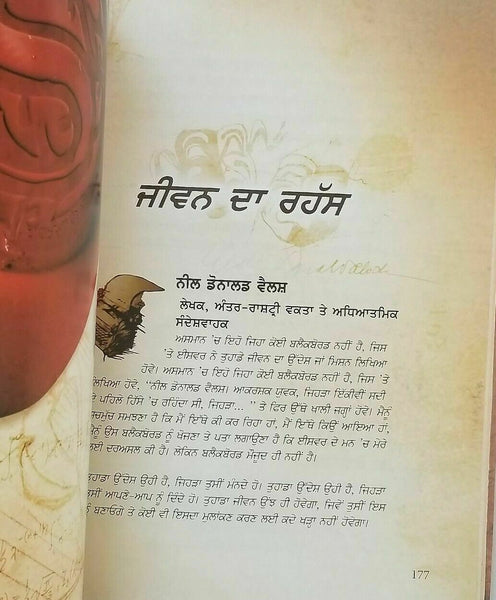 ਜੀਵਨ ਦਾ ਰਹੱਸ
ਨੀਲ ਡੋਨਾਲਡ ਵੈਲਸ਼
ਲੇਖਕ, ਅੰਤਰ-ਰਾਸ਼ਟ੍ਰੀ ਵਕਤਾ ਤੇ ਅਧਿਆਤਮਿਕ
ਸੰਦੇਸ਼ਵਾਹਕ
ਅਸਮਾਨ 'ਚ ਇਹੋ ਜਿਹਾ ਕੋਈ ਬਲੈਕਬੋਰਡ ਨਹੀਂ ਹੈ, ਜਿਸ
'ਤੇ ਈਸ਼ਵਰ ਨੇ ਤੁਹਾਡੇ ਜੀਵਨ ਦਾ ਉੱਦੇਸ਼ ਜਾਂ ਮਿਸ਼ਨ ਲਿਖਿਆ
ਹੋਵੇ। ਅਸਮਾਨ 'ਚ ਇਹੋ ਜਿਹਾ ਕੋਈ ਬਲੈਕਬੋਰਡ ਨਹੀਂ ਹੈ, ਜਿਸ 'ਤੇ
ਲਿਖਿਆ ਹੋਵੇ, "ਨੀਲ ਡੋਨਾਲਡ ਵੈਲਸ਼। ਆਕਰਸ਼ਕ ਯੁਵਕ, ਜਿਹੜਾ ਇੱਕੀਵੀਂ ਸਦੀ
ਦੇ ਪਹਿਲੇ ਹਿੱਸੇ 'ਚ ਰਹਿੰਦਾ ਸੀ, ਜਿਹੜਾ... " ਤੇ ਫਿਰ ਉੱਥੇ ਖਾਲੀ ਜਗ੍ਹਾ ਹੋਵੇ। ਮੈਨੂੰ
ਸਚਮੁਚ ਸਮਝਣਾ ਹੈ ਕਿ ਮੈਂ ਇੱਥੇ ਕੀ ਕਰ ਰਿਹਾ ਹਾਂ, ਮੈਂ ਇੱਥੇ ਕਿਉਂ ਆਇਆ ਹਾਂ,
ਮੈਨੂੰ ਉਸ ਬਲੈਕਬੋਰਡ ਨੂੰ ਖੋਜਣਾ ਤੇ ਪਤਾ ਲਗਾਉਣਾ ਹੈ ਕਿ ਈਸ਼ਵਰ ਦੇ ਮਨ 'ਚ ਮੇਰੇ
ਲਈ ਦਰਅਸਲ ਕੀ ਹੈ। ਲੇਕਿਨ ਬਲੈਕਬੋਰਡ ਮੌਜੂਦ ਹੀ ਨਹੀਂ ਹੈ।
ਤੁਹਾਡਾ ਉੱਦੇਸ਼ ਉਹੀ ਹੈ, ਜਿਹੜਾ ਤੁਸੀਂ ਮੰਨਦੇ ਹੋ। ਤੁਹਾਡਾ ਉੱਦੇਸ਼ ਉਹੀ ਹੈ, ਜਿਹੜਾ
ਤੁਸੀਂ ਆਪਣੇ-ਆਪ ਨੂੰ ਦਿੰਦੇ ਹੋ। ਤੁਹਾਡਾ ਜੀਵਨ ਉਂਝ ਹੀ ਹੋਵੇਗਾ, ਜਿਵੇਂ ਤੁਸੀਂ ਇਸ
ਨੂੰ ਬਣਾਓਗੇ ਤੇ ਕੋਈ ਵੀ ਇਸਦਾ ਮੁਲਾਂਕਣ ਕਰਣ ਲਈ ਕਦੇ ਖੜ੍ਹਾ ਨਹੀਂ ਹੋਵੇਗਾ।
177